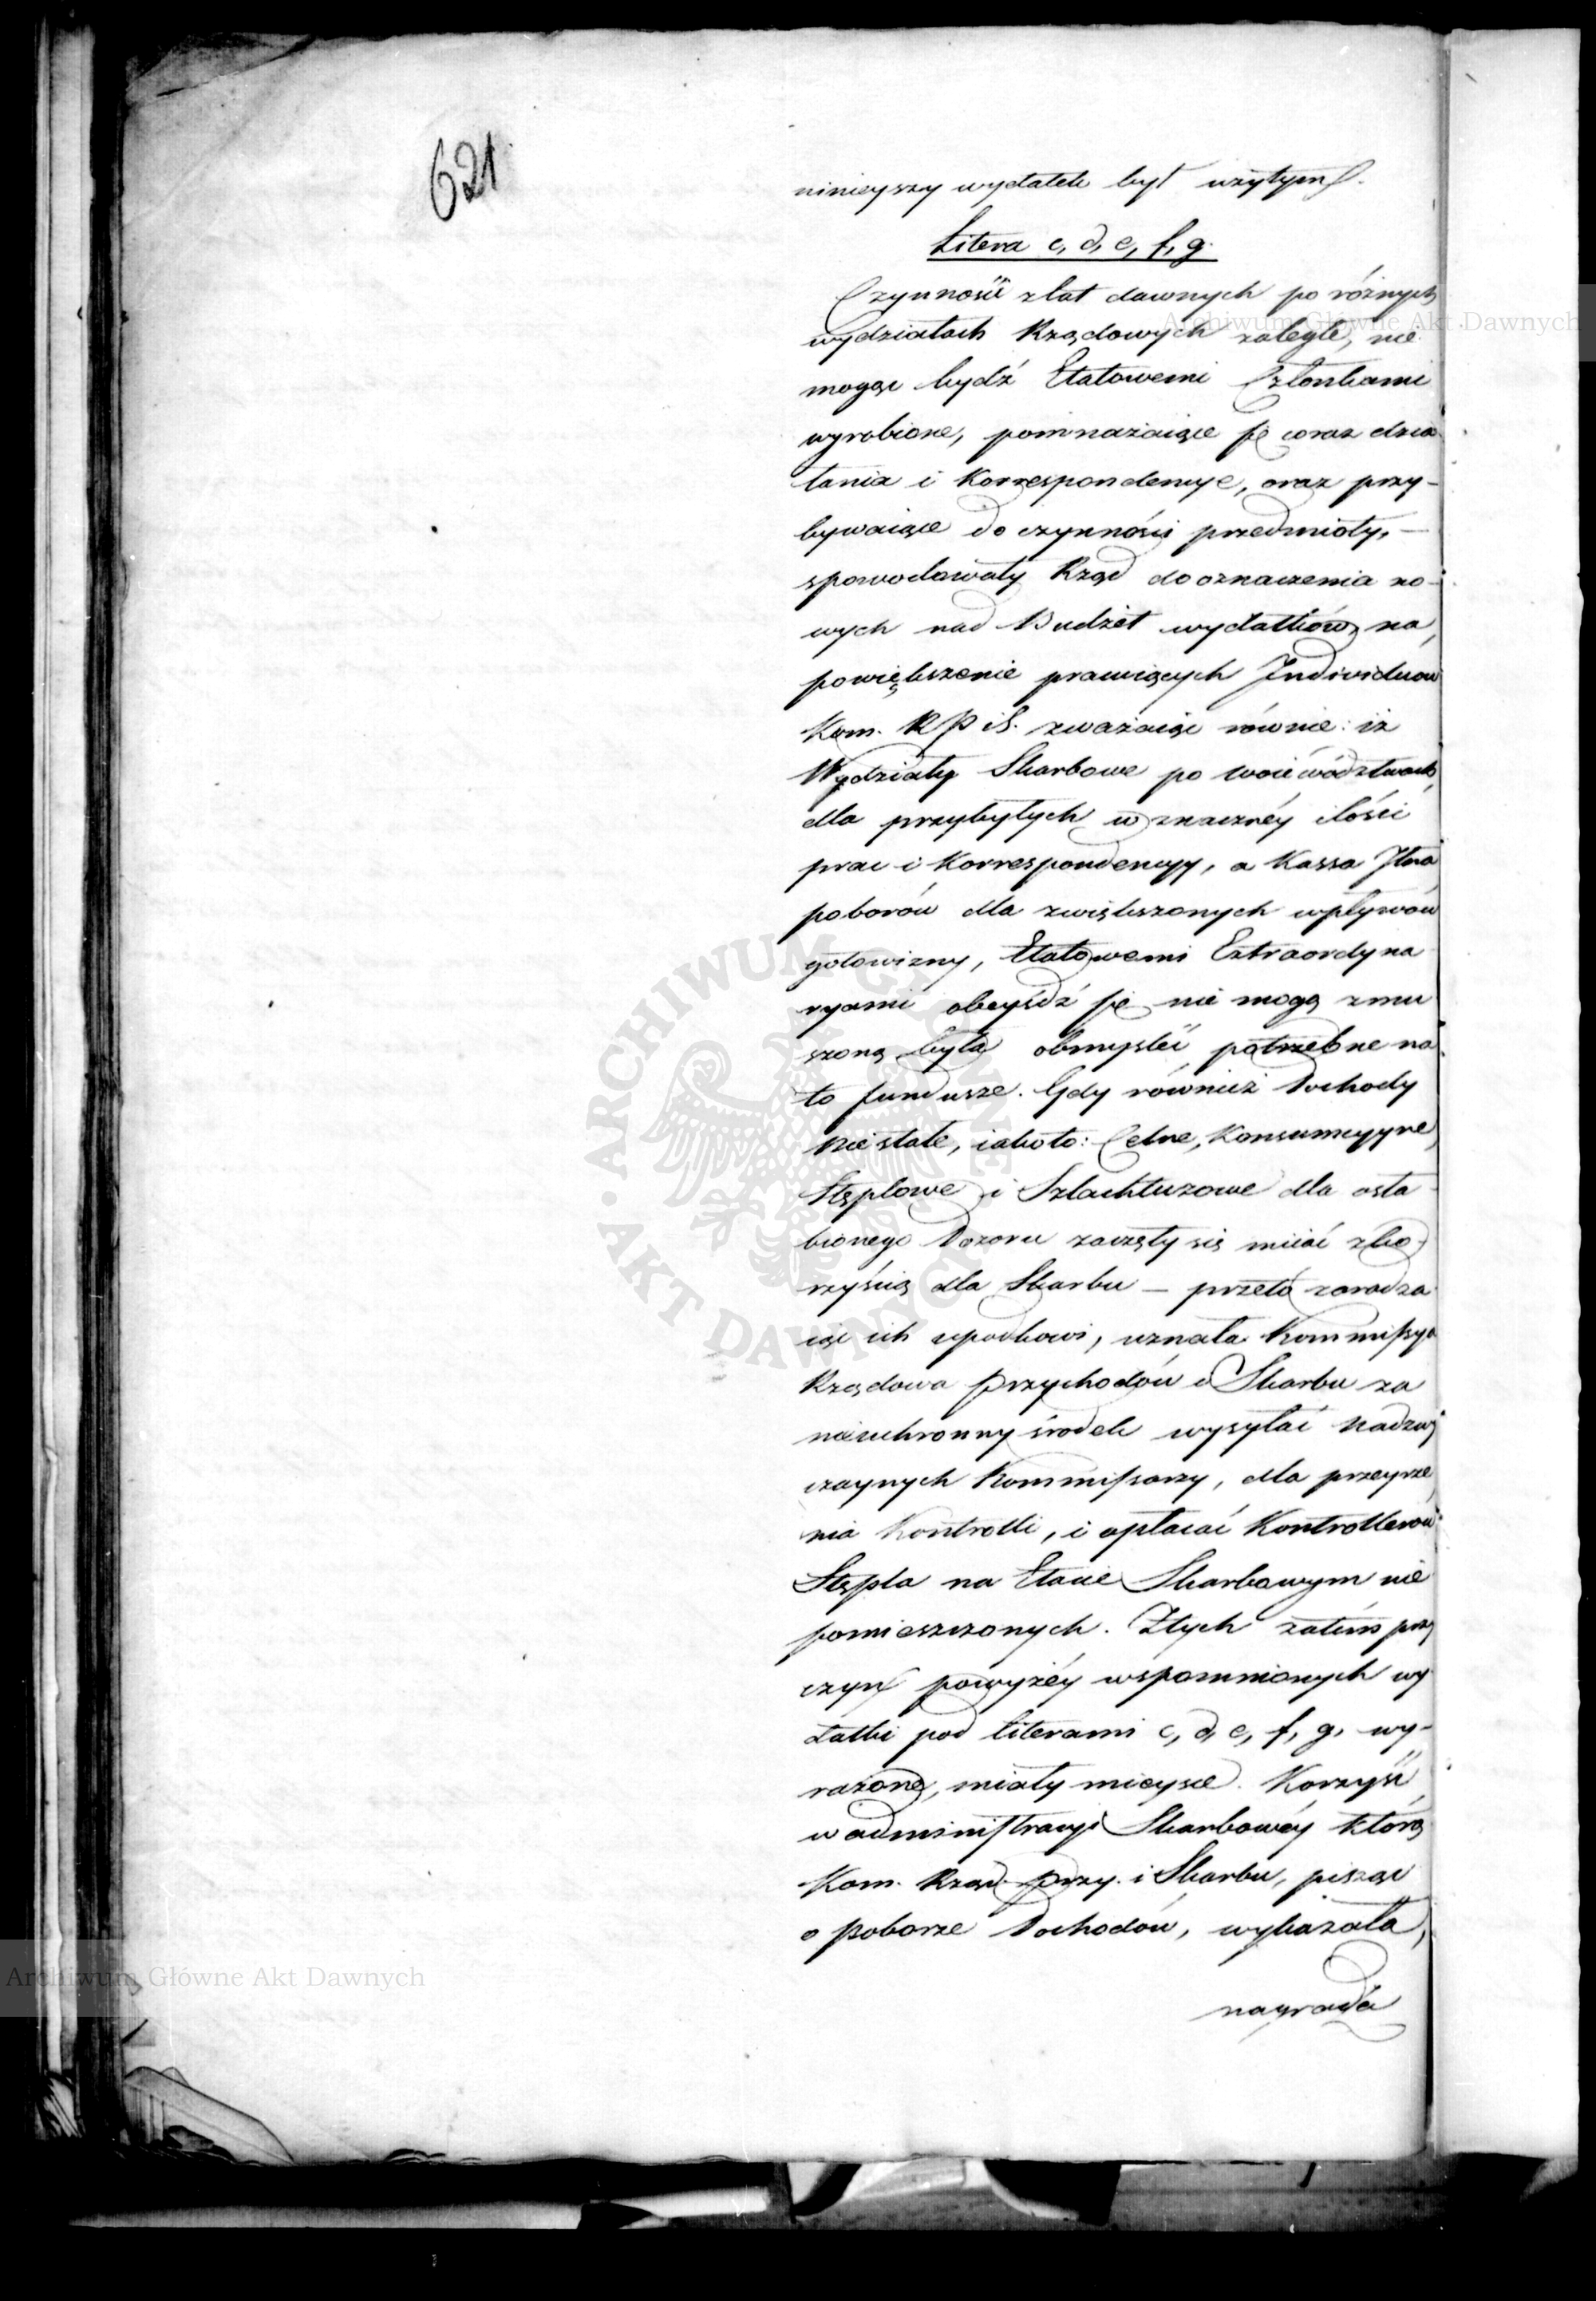 621.
ninieyszy wydatek był użytym.
Litera c, d, e, f, g.
Czynności z lat dawnych po różnych
wydziałach Rządowych zaległe, nie
mogąc bydź Etatowemi Członkami
wyrobione, pomnażaiące się coraz dzia
łania i Korrespondencye, oraz przy-
bywaiące do czynności przedmioty, —
spowodowały Rząd do oznaczenia no-
wych nad Budżet wydatków, na
powiększenie pracuiących Individuów
Kom. R P i S. zważaiąc równie: iż
Wydziały Skarbowe po Woiewództwach,
dla przybyłych w znacznéy ilości
prac i Korrespondencyy, a Kassa
poborów dla zwiększonych wpływów
gotowizny, Etatowemi Extraordyna
ryami obeyśdź się nie mogą zmu
szoną była obmyśleć potrzebne na
to fundusze. Gdy również Dochody
Niestałe, iako to: Celne, Konsumcyyne,
Stęplowe i Szlachtuzowe dla osła
bionego Dozoru zaczęły się miiać z ko-
rzyścią dla Skarbu — przeto zaradza
iąc ich upadkowi, uznała Kommissya
Rządowa Przychodów i Skarbu za
nieuchronny środek wysyłać Nadzwy
czaynych Kommissarzy, dla przeyrze
nia Kontrolli, i opłacać Kontrollerów
Stępla na Etacie Skarbowym nie
pomieszczonych. Z tych zatém przy
czyn powyżéy wspomnionych wy
datki pod literami c, d, e, f, g, wy-
rażone, miały mieysce. Korzyść
w administracyi Skarbowéy którą
Kom. Rząd. Przy. i Skarbu, pisząc
o Poborze Dochodów, wykazała,
nagradza
Archiwum Główne Akt Dawnych
Archiwum Główne Akt Dawnych
ARCHIWUM GŁÓWNE AKT DAWNYCH